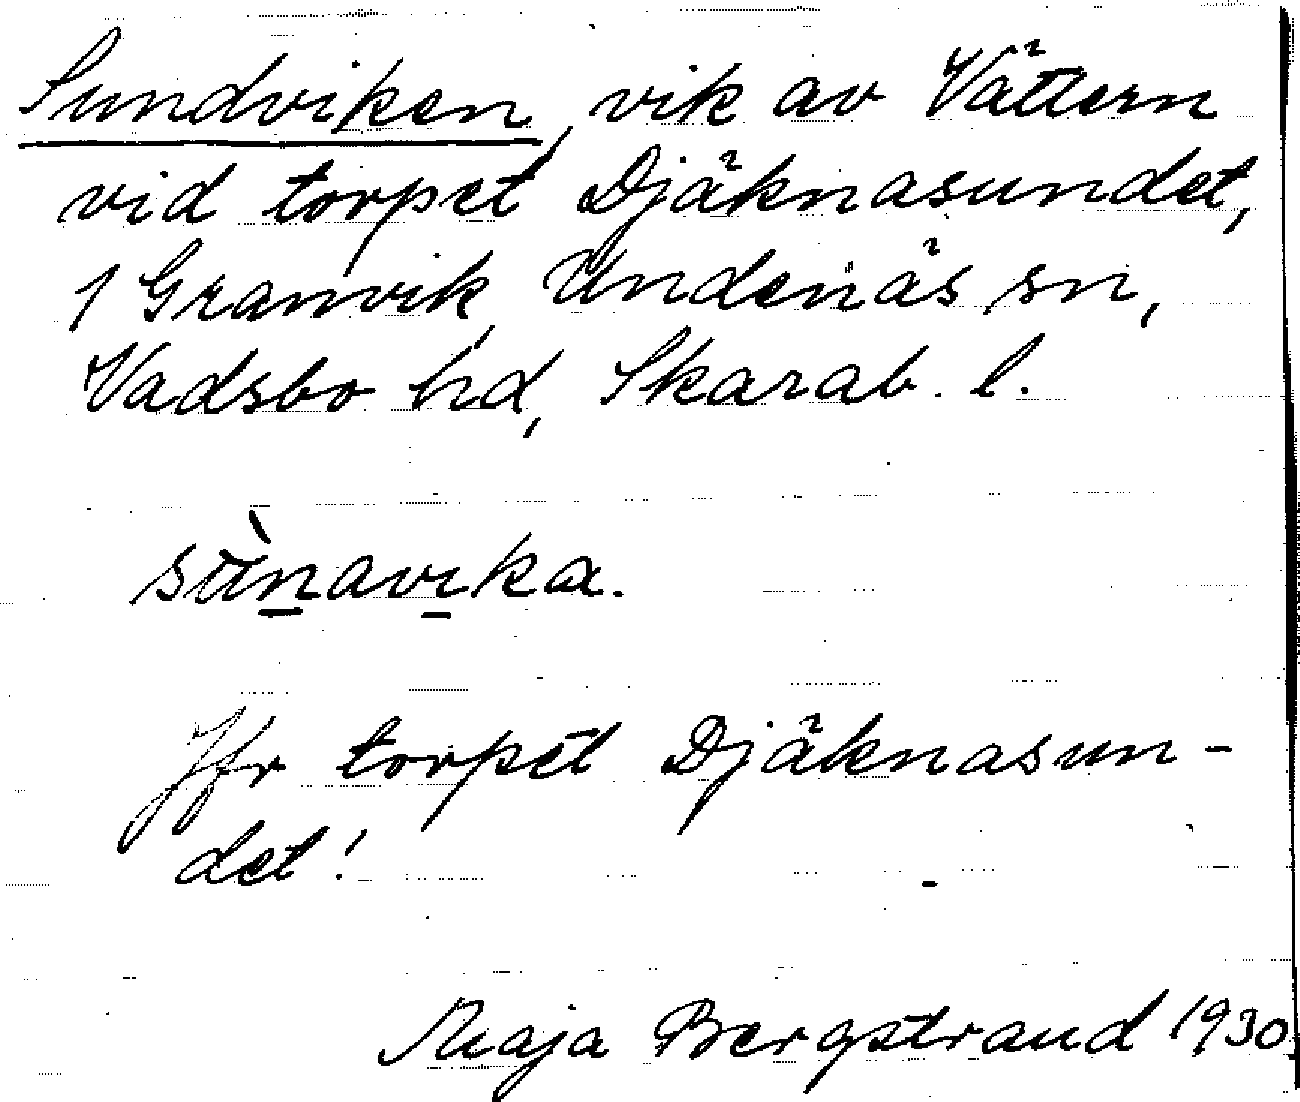 Sundviken, vik av Vättern
vid torpet Djäknasundet,
1 Granvik, Undenäs sn,
Vadsbo hd, Skarab. l.
sùnavika.
Jfr torpet Djäknasun-
det!
Maja Bergstrand 1930.